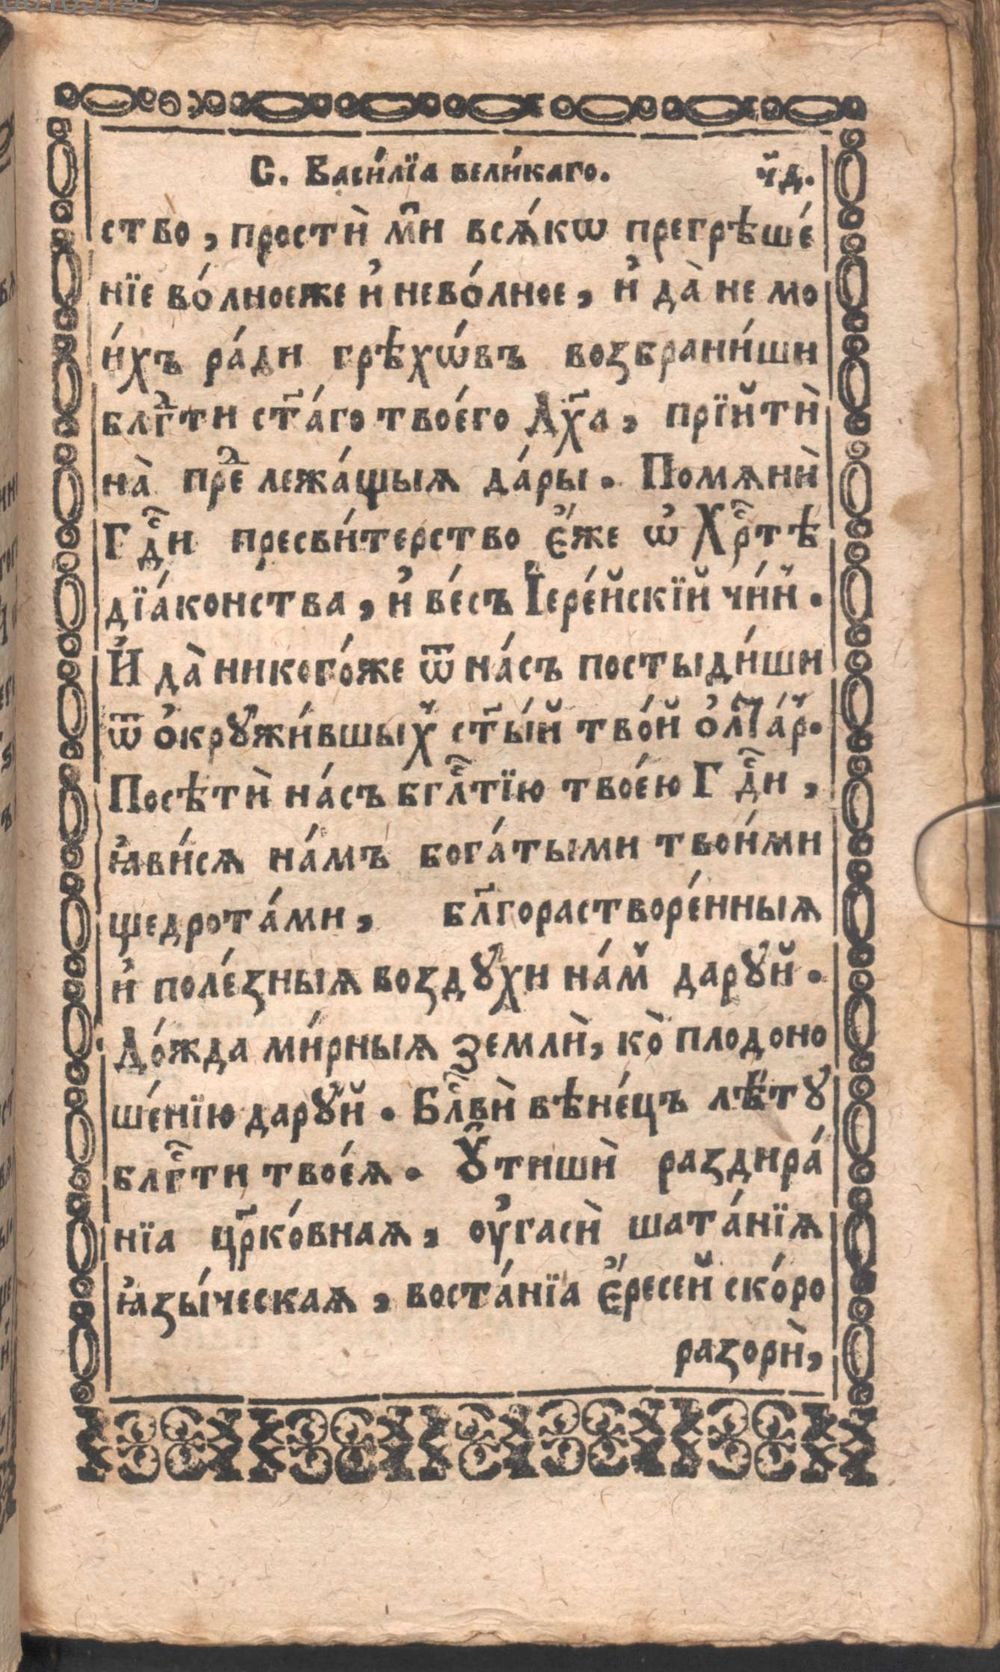 С. Васи́лїа вели́каго. ч҃д.
ство, простѝ мѝ всѧ́кѡ прегрѣше́
нїе во́лноеже и҆ нево́лное, и҆ да̀ не мо
и́хъ ра́ди грѣхѡ́въ возбрани́ши
блгⷣти ст҃а́го твое́го Дх҃а, прїйтѝ
на̀ преⷣ лежа́щыѧ да́ры. Помѧнѝ
Гдⷭ҇и пресви́терство є҆́же ѡ҆ Хрⷭ҇тѣ
дїа́конства, и҆ ве́съ І҆ере́йскїй чи́н.
И҆ да̀ никого́же ѿ на́съ постыди́ши
ѿ ѻ҆крꙋжи́вшыⷯ ст҃ы́й тво́й ѻ҆лта́р.
Посѣтѝ на́съ бглⷭ҇тїю твое́ю Гдⷭ҇и,
ꙗ҆ви́сѧ на́мъ бога́тыми твои́ми
щедрота́ми, бл҃горастворе́нныѧ
и҆ поле́зныѧ воздꙋ́хи на́м дарꙋ́й.
До́жда ми́рныѧ землѝ, ко̀ плодоно
ше́нїю дарꙋ́й. Блⷭ҇вѝ вѣне́цъ лѣ́тꙋ
блгⷭ҇ти твое́ѧ. Ꙋ҆тишѝ раздира́
нїа цр҃ко́внаѧ, ѹ҆гасѝ шата́нїѧ
ꙗ҆зы́ческаѧ, воста́нїа є҆́ресей ско́ро
разорѝ,